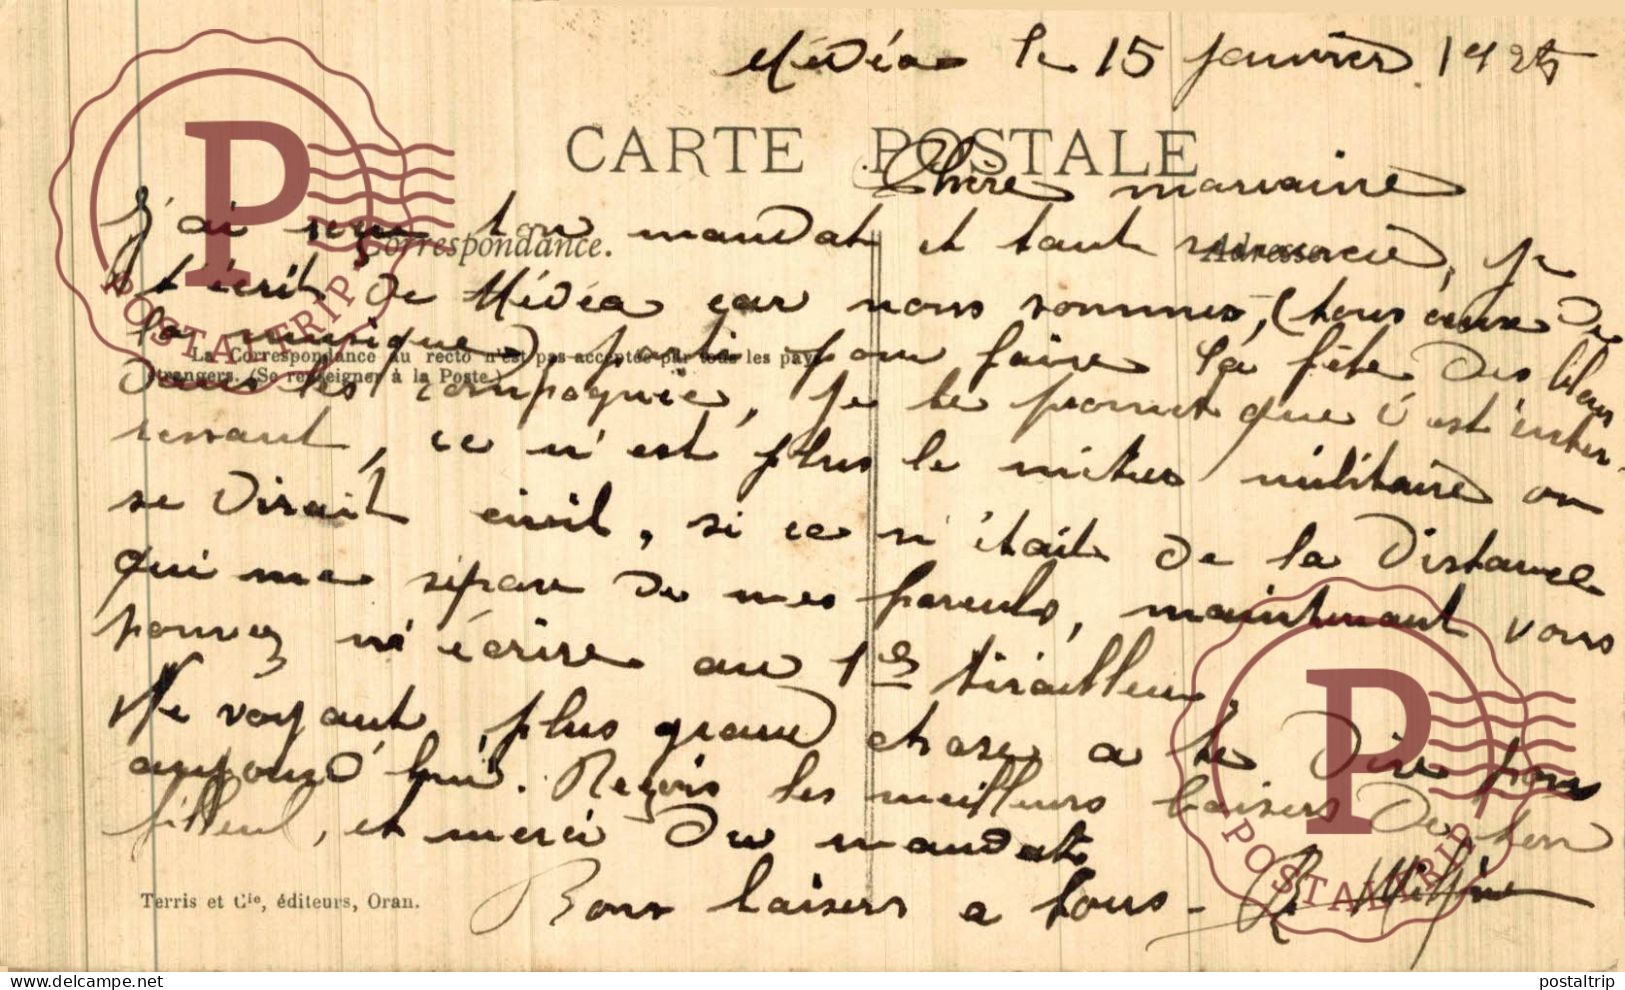 Médéa le 15 janvier 1925
CARTE POSTALE
Chère marraine
J'ai reçu ton mandat et tant remercié, je
Correspondance.
Adresse
t'écrit de Médéa car nous sommes, (tous ceux de
la musique) parti pour faire la fête des bleus
La Correspondance au recto n'est pas acceptée par tous les pays
étrangers. (Se renseigner à la Poste.)
dans les compagnie, je te promet que c'est inter-
ressant, ce n'est plus le métier militaire on
se dirait civil, si ce n'était de la distance
qui me sépare de mes parents, maintenant vous
pouvez m'écrire au 1er tirailleur,
Ne voyant plus grand chose a te dire pour
aujourd'hui. Reçois les meilleurs baisers de ton
filleul, et merci du mandat
Terris et Cie, éditeurs, Oran.
Bons baisers a tous - R
POSTALTRIP
POSTALTRIP
delcampe.net
postaltrip